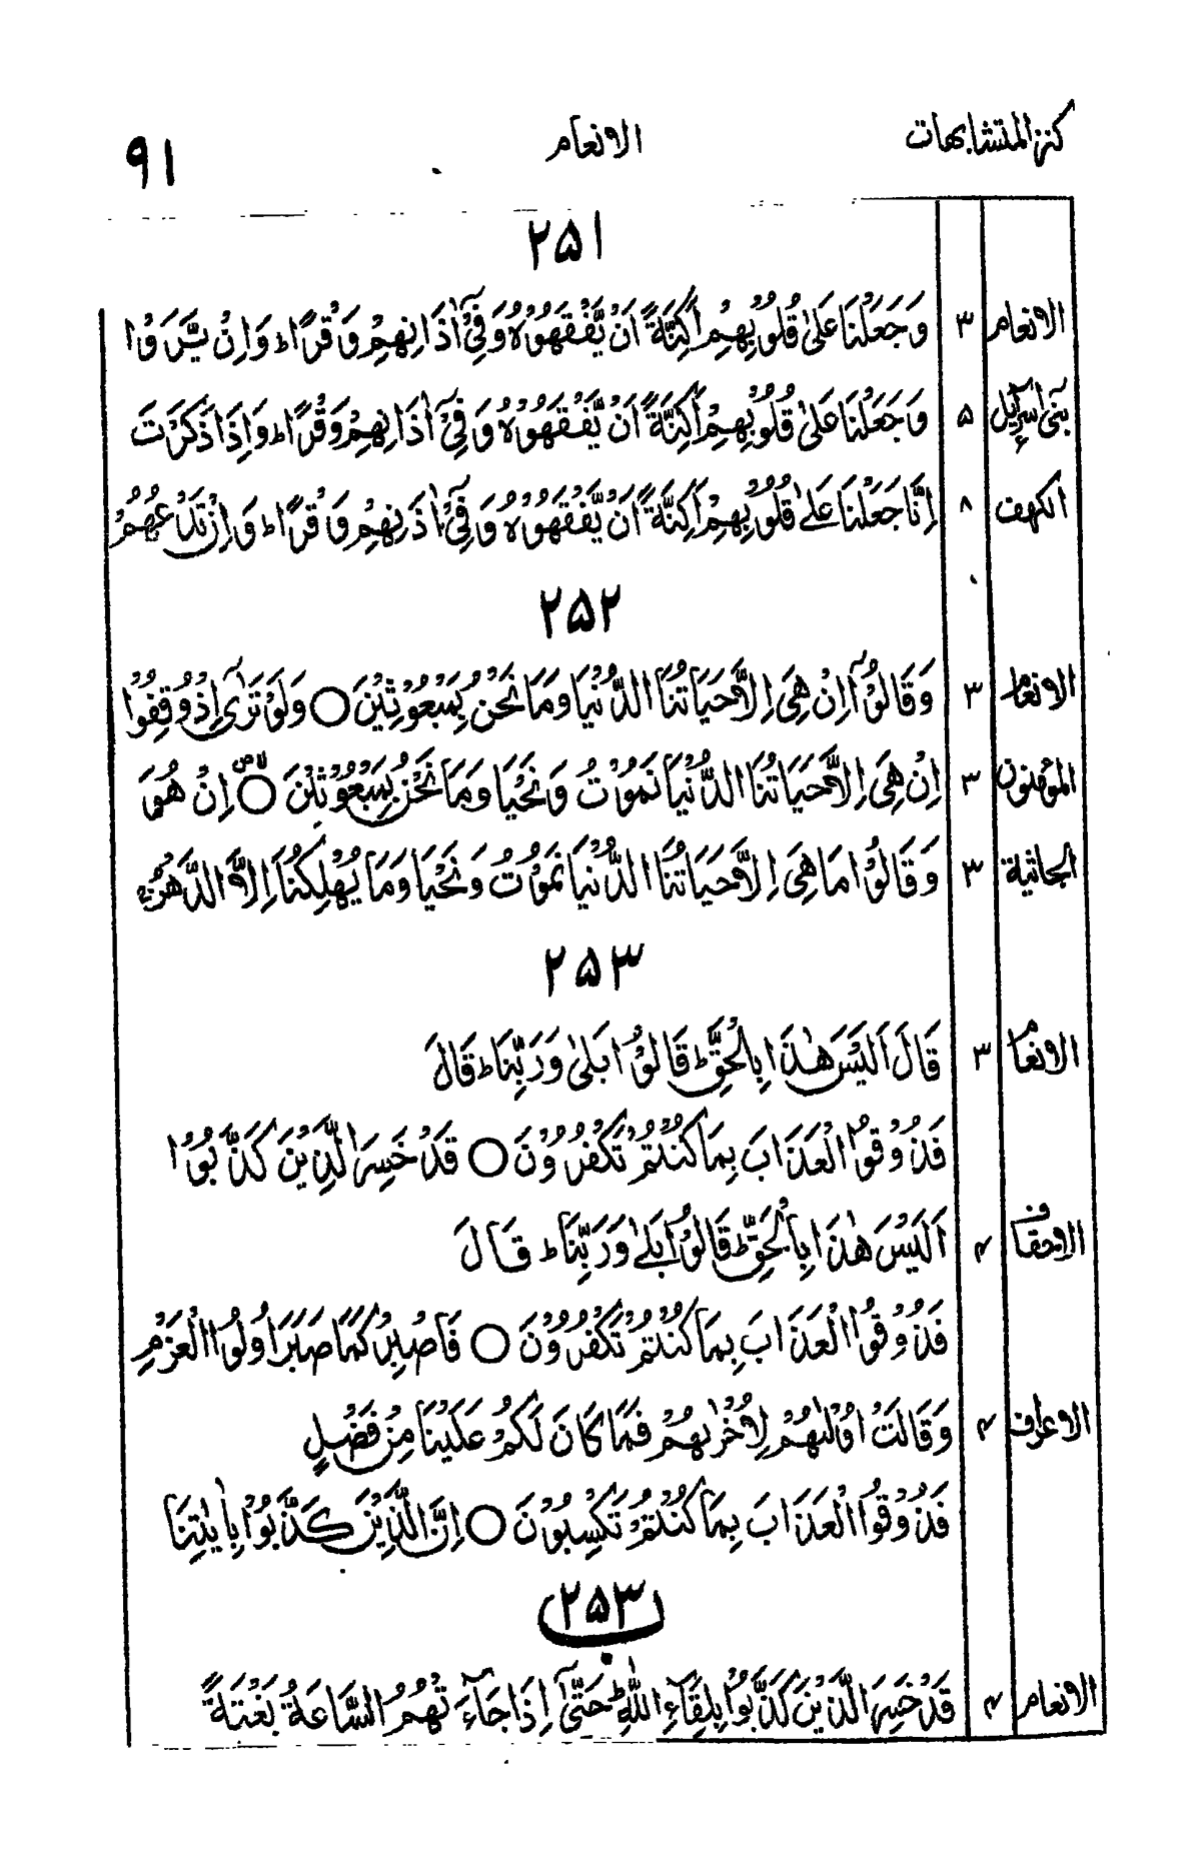 كنز المتشابهات الانعام ٩١
٢٥١
الانعام ٣ وَجَعَلْنَا عَلٰى قُلُوْبِهِمْ اَكِنَّةً اَنْ يَّفْقَهُوْهُ وَفِيْٓ اٰذَانِهِمْ وَقْرًا ؕ وَاِنْ يَّرَوْا
بنی اسرآئیل ۵ وَجَعَلْنَا عَلٰى قُلُوْبِهِمْ اَكِنَّةً اَنْ يَّفْقَهُوْهُ وَفِيْٓ اٰذَانِهِمْ وَقْرًا ؕ وَاِذَا ذَكَرْتَ
الكهف ٨ اِنَّا جَعَلْنَا عَلٰى قُلُوْبِهِمْ اَكِنَّةً اَنْ يَّفْقَهُوْهُ وَفِيْٓ اٰذَانِهِمْ وَقْرًا ؕ وَاِنْ تَدْعُهُمْ
٢٥٢
الانعام ٣ وَقَالُوْٓا اِنْ هِيَ اِلَّا حَيَاتُنَا الدُّنْيَا وَمَا نَحْنُ بِمَبْعُوْثِيْنَ ○ وَلَوْ تَرٰٓى اِذْ وُقِفُوْا
المؤمنون ٣ اِنْ هِيَ اِلَّا حَيَاتُنَا الدُّنْيَا نَمُوْتُ وَنَحْيَا وَمَا نَحْنُ بِمَبْعُوْثِيْنَ ○ اِنْ هُوَ
الجاثية ٣ وَقَالُوْا مَا هِيَ اِلَّا حَيَاتُنَا الدُّنْيَا نَمُوْتُ وَنَحْيَا وَمَا يُهْلِكُنَآ اِلَّا الدَّهْرُ
٢٥٣
الانعام ٣ قَالَ اَلَيْسَ هٰذَا بِالْحَقِّ ؕ قَالُوْا بَلٰى وَرَبِّنَا ؕ قَالَ
فَذُوْقُوا الْعَذَابَ بِمَا كُنْتُمْ تَكْفُرُوْنَ ○ قَدْ خَسِرَ الَّذِيْنَ كَذَّبُوْا
الاحقاف ۴ اَلَيْسَ هٰذَا بِالْحَقِّ ؕ قَالُوْا بَلٰى وَرَبِّنَا ؕ قَالَ
فَذُوْقُوا الْعَذَابَ بِمَا كُنْتُمْ تَكْفُرُوْنَ ○ فَاصْبِرْ كَمَا صَبَرَ اُولُوا الْعَزْمِ
الاعراف ۴ وَقَالَتْ اُوْلٰىهُمْ لِاُخْرٰىهُمْ فَمَا كَانَ لَكُمْ عَلَيْنَا مِنْ فَضْلٍ
فَذُوْقُوا الْعَذَابَ بِمَا كُنْتُمْ تَكْسِبُوْنَ ○ اِنَّ الَّذِيْنَ كَذَّبُوْا بِاٰيٰتِنَا
٢٥٣ ب
الانعام ۴ قَدْ خَسِرَ الَّذِيْنَ كَذَّبُوْا بِلِقَآءِ اللّٰهِ ؕ حَتّٰٓى اِذَا جَآءَتْهُمُ السَّاعَةُ بَغْتَةً